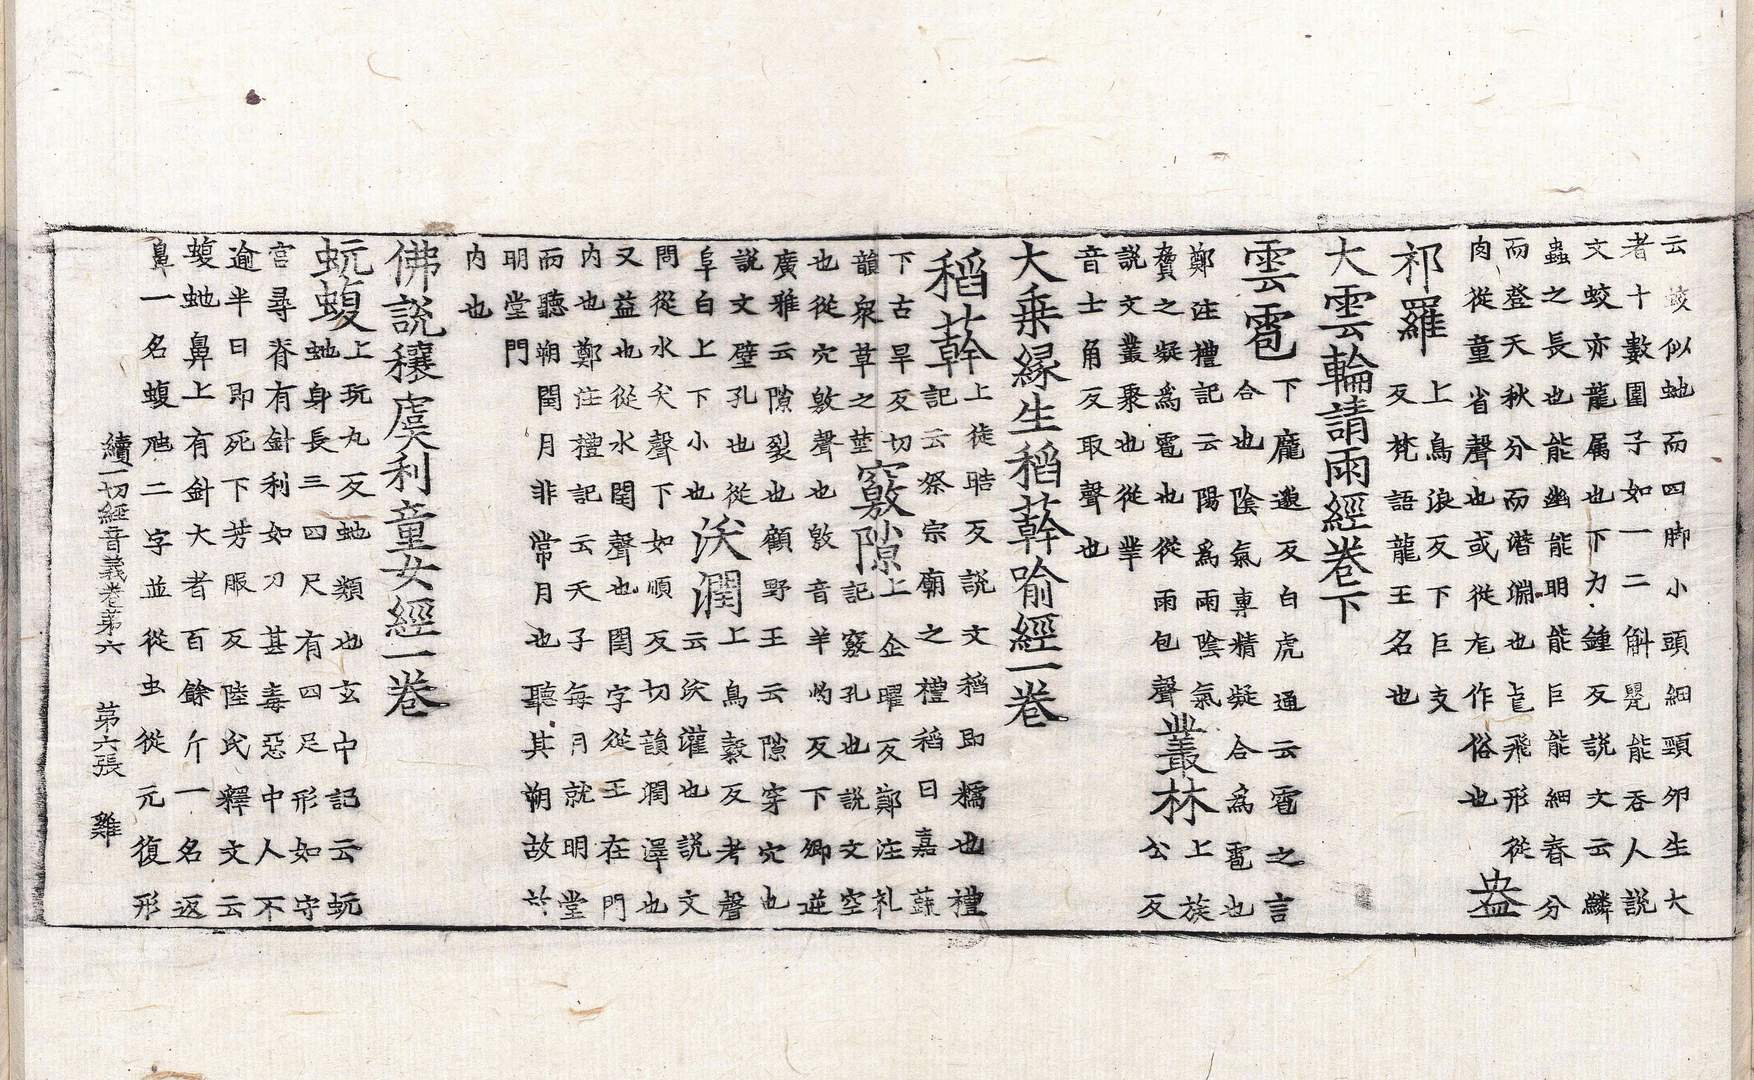 云蛟似虵而四脚小頭細頸夘生大
者十數圍子如一二斛甖能吞人說
文蛟亦龍属也下力鍾反說文云鱗
蟲之長也能幽能明能巨能細春分
而登天秋分而潛淵也䇂飛形從
肉從童省聲也或從尨作俗也 盎
祁羅 上鳥浪反下巨支
反梵語龍王名也
大雲輪請雨經卷下
雲雹 下龐邈反白虎通云雹之言
合也陰氣專精凝合為雹也
鄭注禮記云陽為雨陰氣
㕡之凝為雹也從雨包聲 叢林 上族
公反
說文叢聚也從丵
音士角反取聲也
大乗縁生稻𦼮喻經一卷
稻𦼮 上徒晧反說文稻即穤也禮
記云祭宗廟之禮稻曰嘉蔬
下古旱反切
韻衆草之莖 竅隙 上企曜反鄭注礼
記竅孔也說文空
也從穴敫聲也敫音羊灼反下卿逆
廣雅云隙裂也顧野王云隙穿穴也
說文壁孔也從
阜白上下小也 浂潤 上鳥縠反考聲
云浂灌也說文
問從水芺聲下如順反切韻潤澤也
又益也從水閏聲也閏字從王在門
内也鄭注禮記云天子每月就明堂
而聽朔閏月非常月也聽其朔故於
明堂門
内也
佛說穰虞利童女經一卷
蚖蝮 上玩丸反虵類也玄中記云蚖
虵身長三四尺有四足形如守
宮尋脊有針利如刀甚毒惡中人不
逾半日即死下芳服反陸氏釋文云
蝮虵鼻上有針大者百餘斤一名返
鼻一名蝮虺二字並從虫從元復形
續一切經音義卷苐六 苐六張 雞